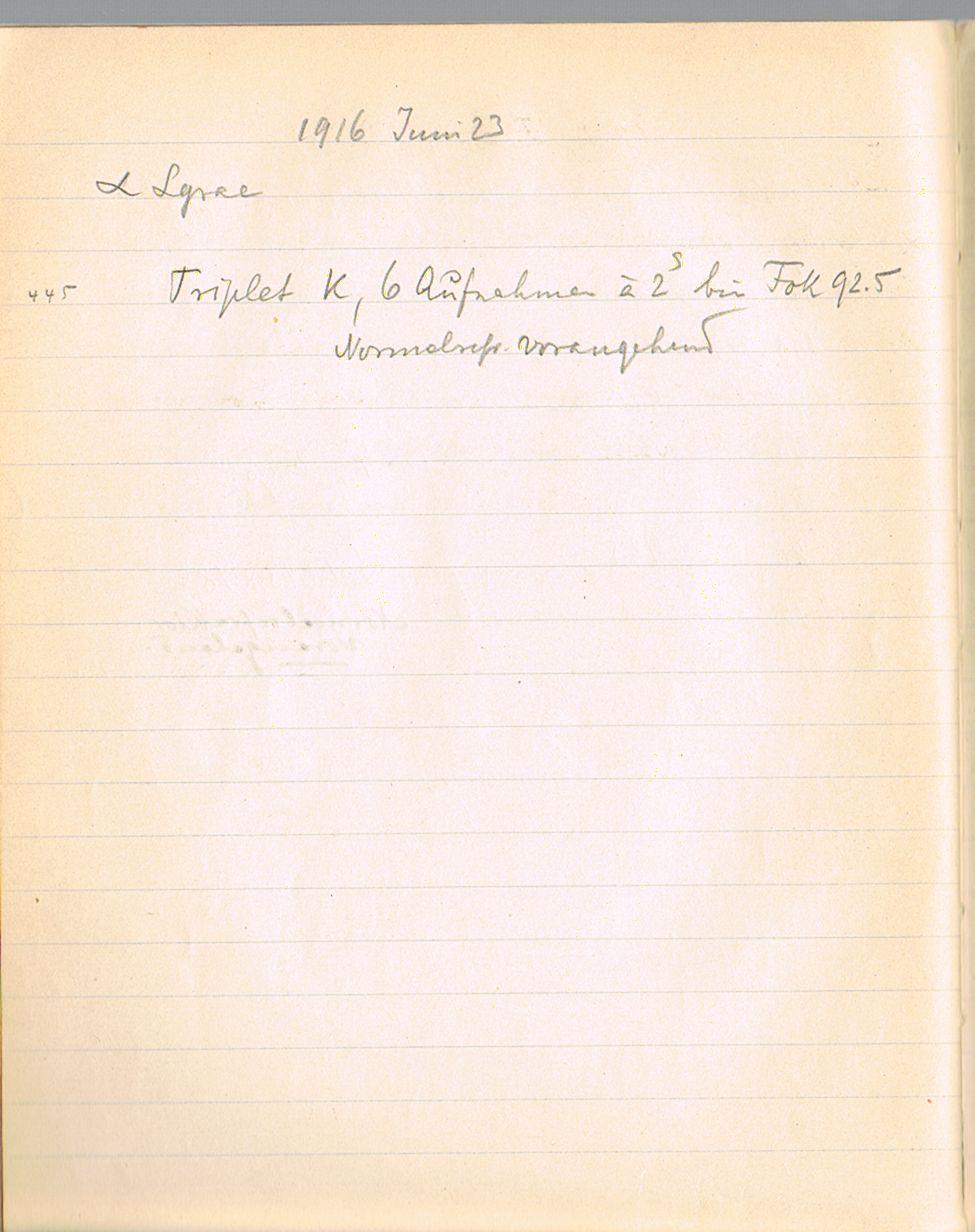 1916 Juni 23
α Lyrae
445 Triplet K, 6 Aufnahmen à 2ˢ bei Fok 92.5
vorangehend